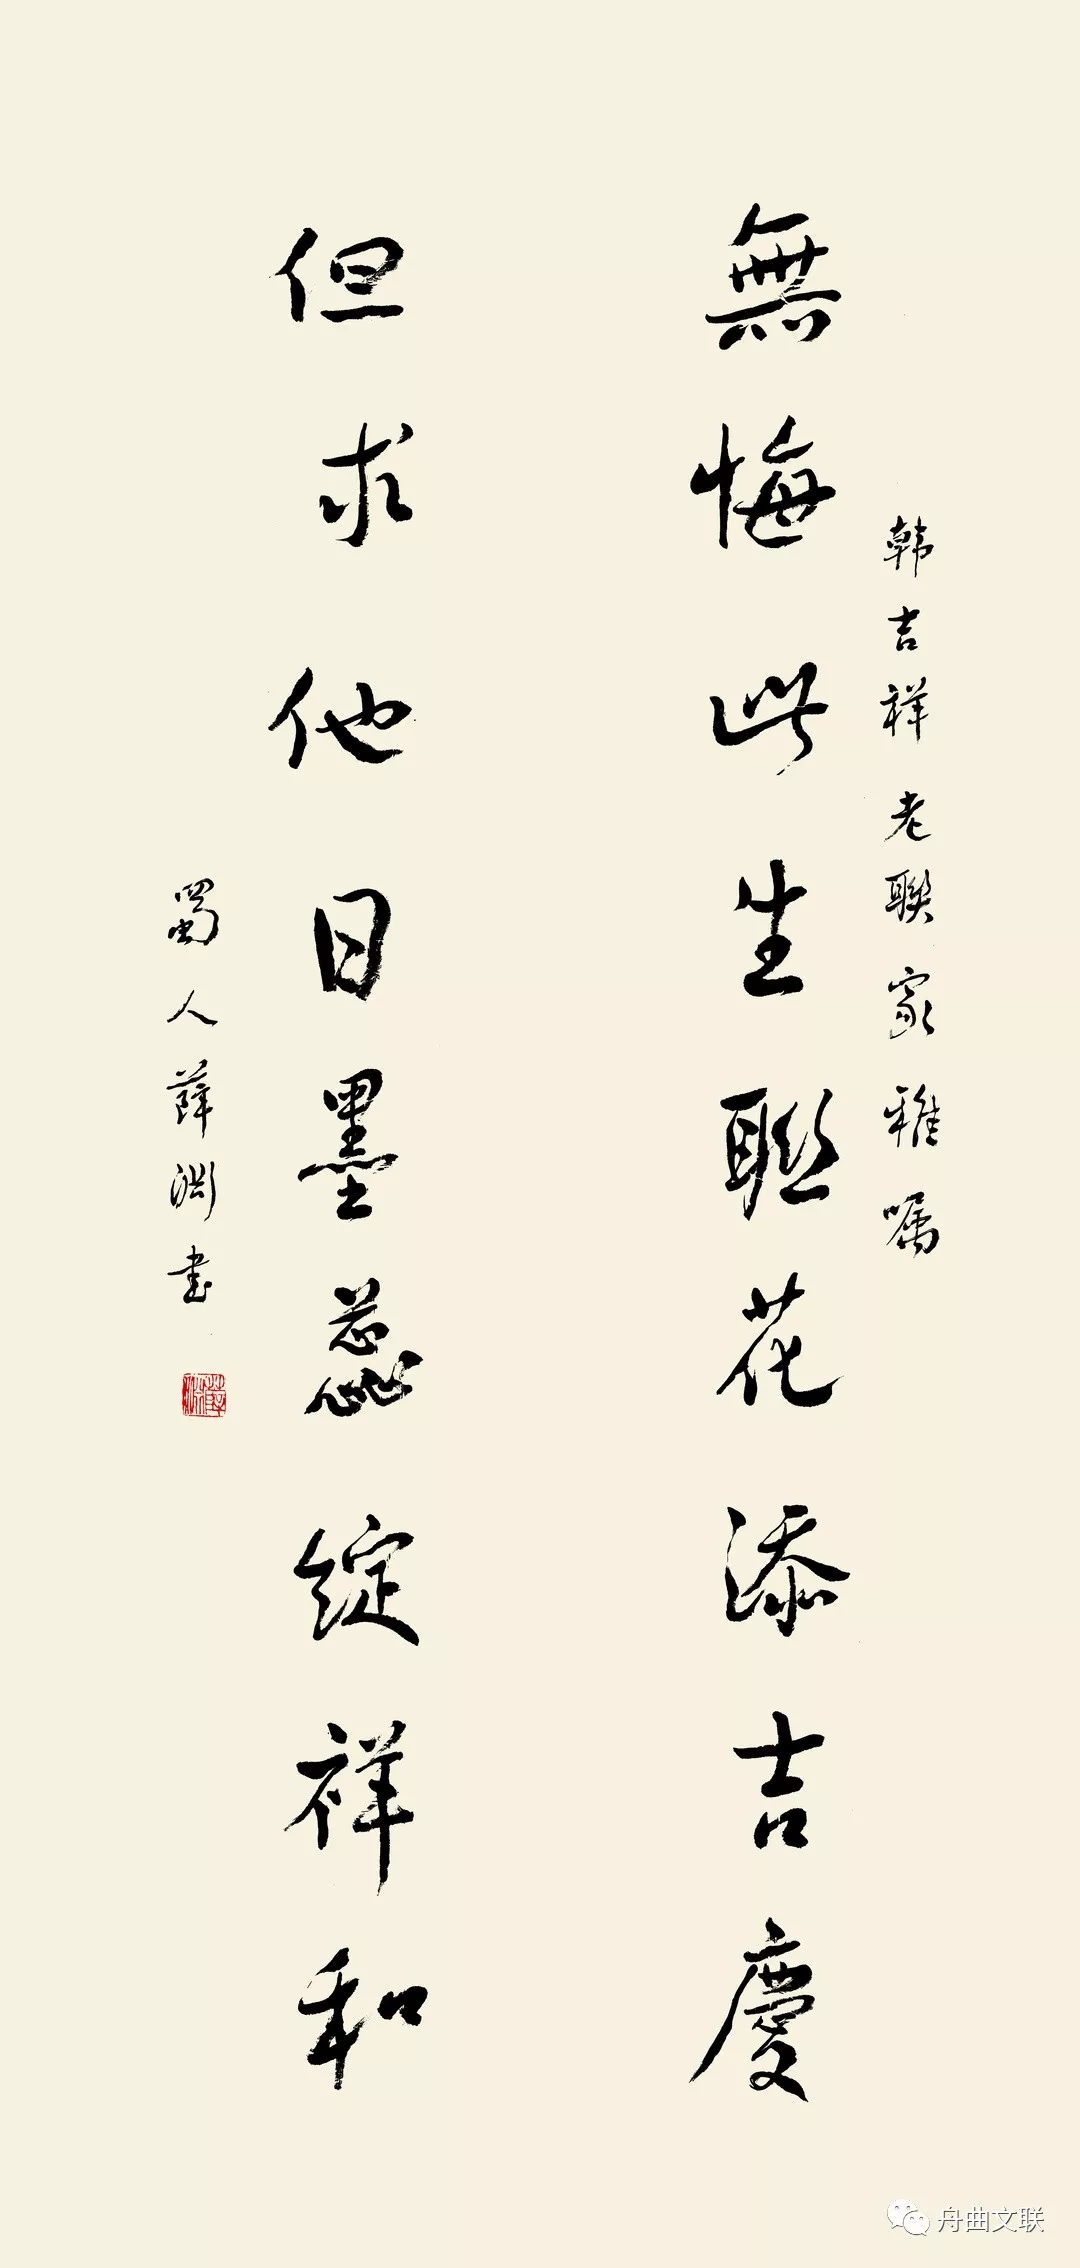 韩吉祥老聯家雅嘱
無悔此生聯花添吉慶
但求他日墨蕊綻祥和
蜀人薛渊书
薛渊
舟曲文联